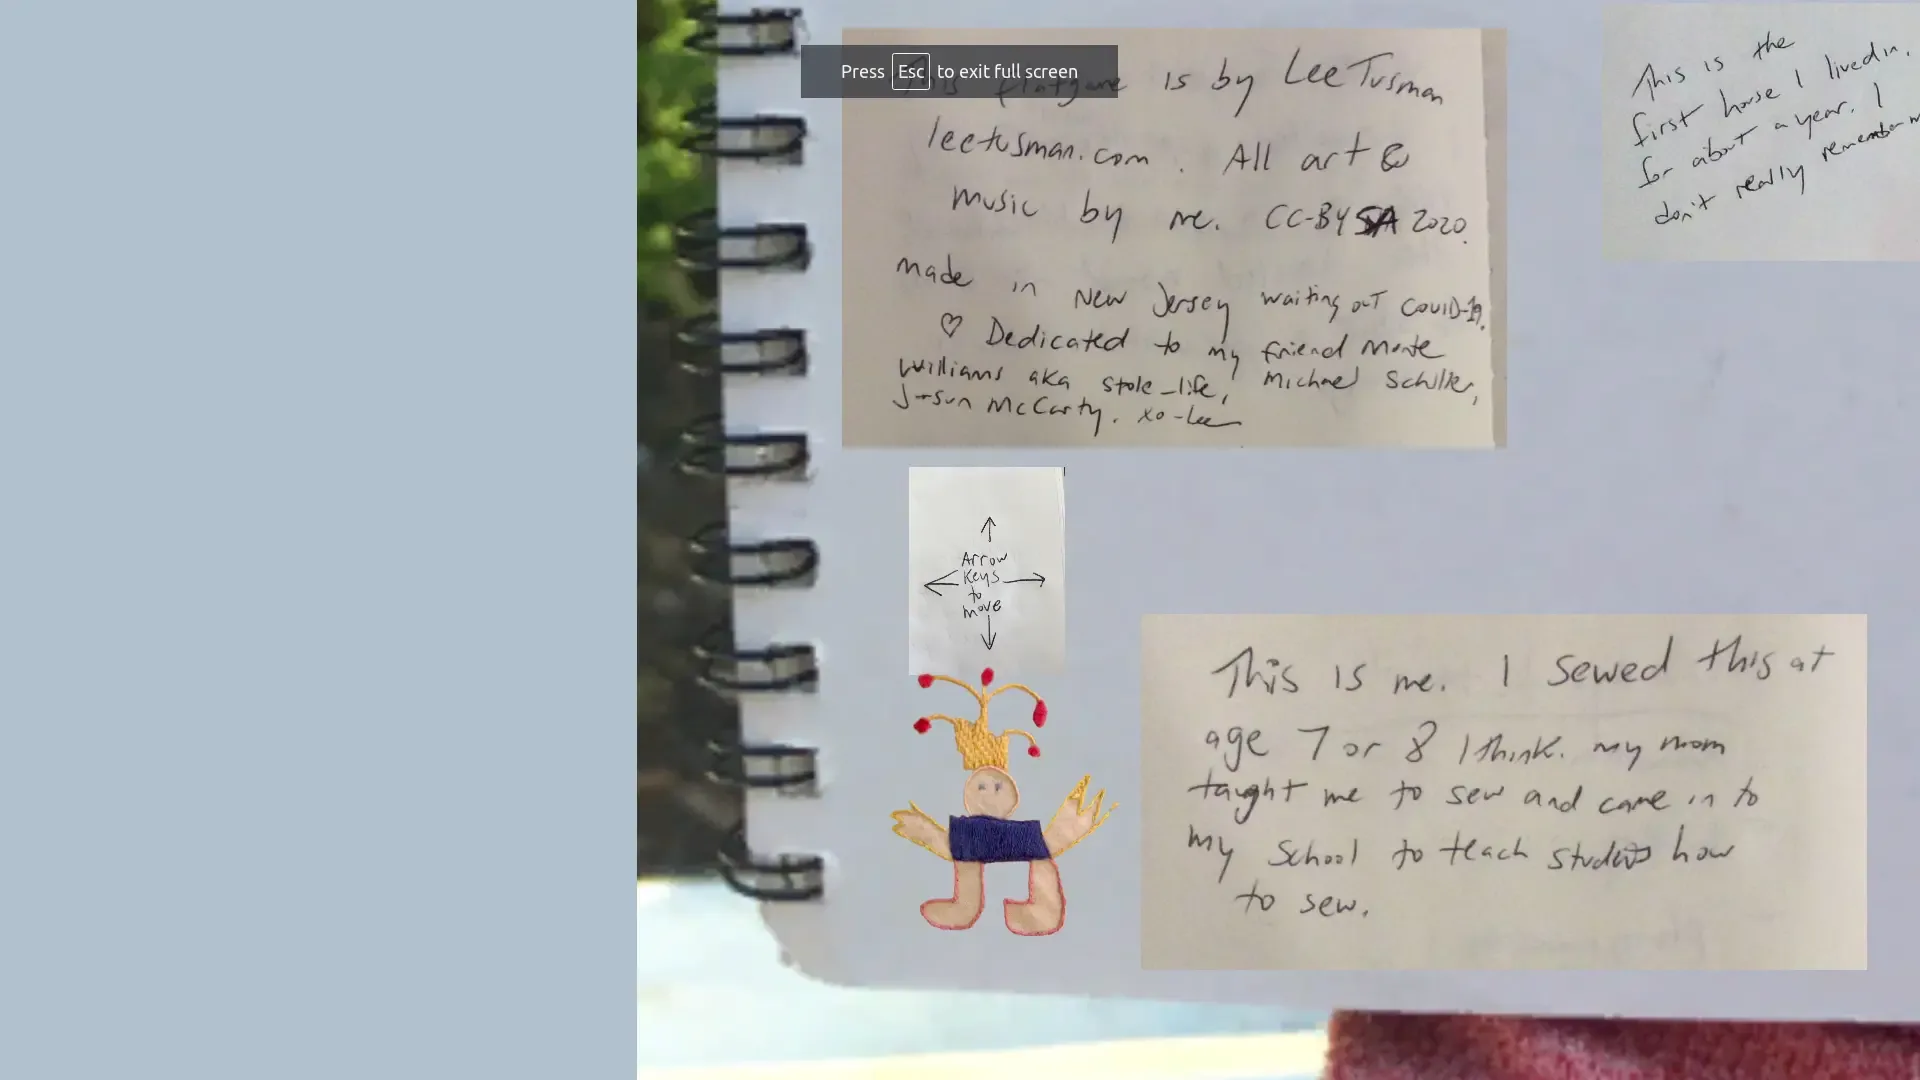 Press Esc to exit full screen
This flatgame is by Lee Tusman
leetusman.com. All art &
music by me. CC-BY SA 2020.
made in New Jersey waiting out COVID-19.
♡ Dedicated to my friend Monte
Williams aka stole_life, Michael Schiller,
Jasun McCarty. xo-Lee
This is the
first house I lived in.
for about a year. I
don't really remember
Arrow
Keys
to
move
This is me. I sewed this at
age 7 or 8 I think. my mom
taught me to sew and came in to
my School to teach students how
to sew.